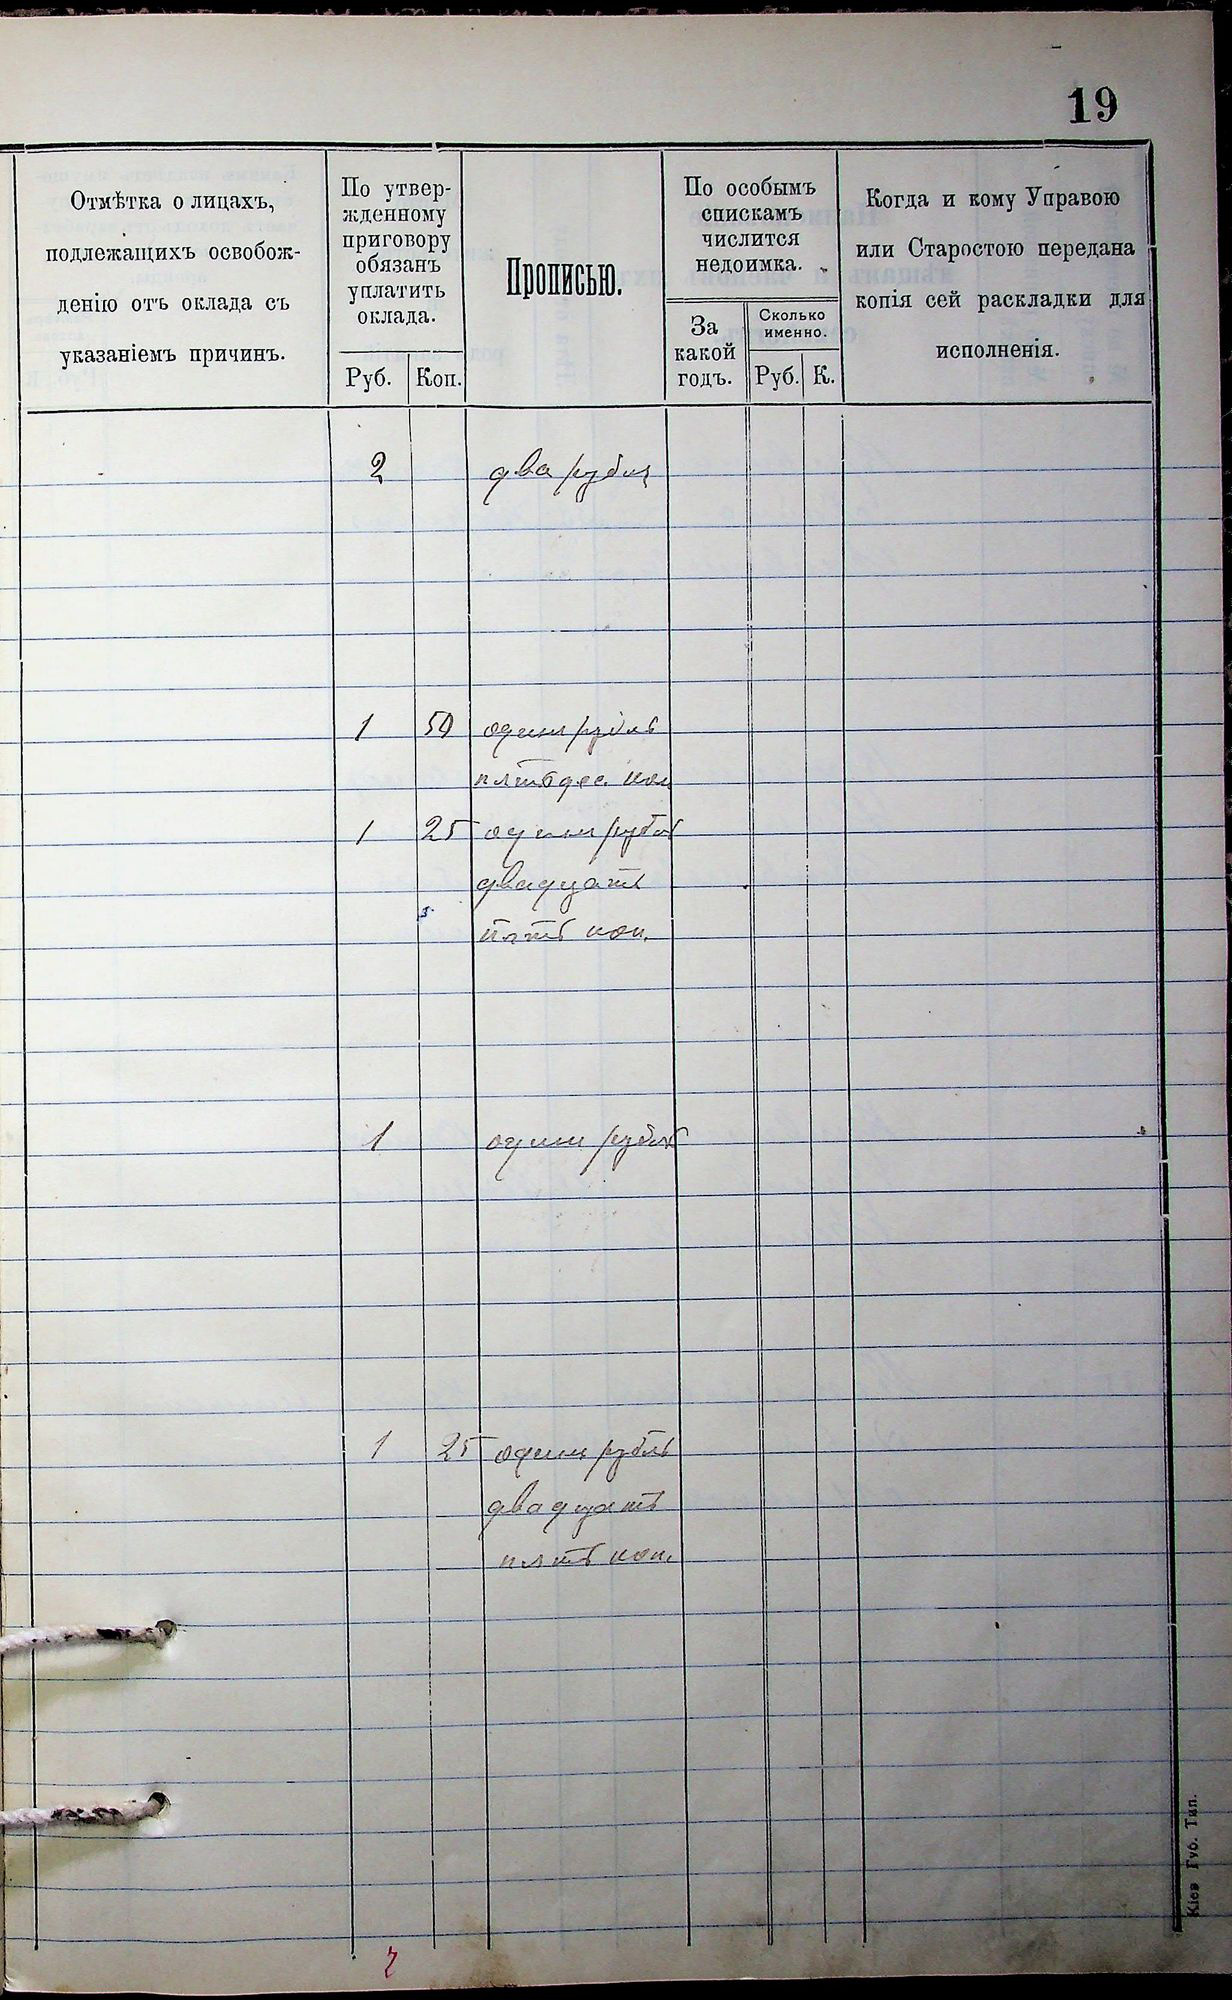 19
Отмѣтка о лицахъ,
подлежащихъ освобож-
денію отъ оклада съ
указаніемъ причинъ.
По утвер-
жденному
приговору
обязанъ
уплатить
оклада.
Руб. Коп.
Прописью.
По особымъ
спискамъ
числится
недоимка.
За
какой
годъ.
Сколько
именно.
Руб. К.
Когда и кому Управою
или Старостою передана
копія сей раскладки для
исполненія.
2 два рубля
1 50 одинъ рубль
пятьдес. коп
1 25 одинъ рубль
двадцать
пять коп.
1 одинъ рубль
1 25 одинъ рубль
двадцать
пять коп.
Кіев Губ. Тип.